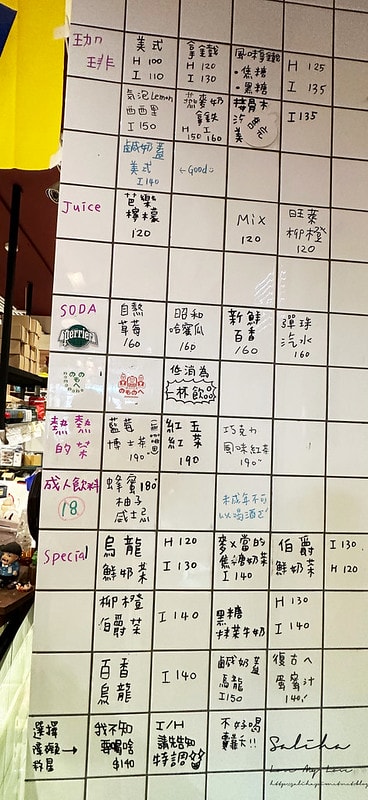 珈琲
美式
H 100
I 110
拿鐵
H 120
I 130
風味拿鐵
•焦糖
•黑糖
H 125
I 135
氣泡Lemon
西西里
I 150
燕麥奶
拿鐵
H 150 I 160
接骨木
美式
I 135
鹹奶蓋
美式
I 140
←Good
Juice
芭樂
檸檬
120
Mix
120
旺萊
柳橙
120
SODA
perrier
自熬
草莓
160
昭和
哈蜜瓜
160
新鮮
百香
160
彈珠
汽水
160
低消為
一杯飲
熱熱的茶
藍莓
博士茶
190
紅玉
紅茶
190
巧克力
風味紅茶
190
成人飲料
18
蜂蜜180
柚子
威士忌
未成年不可
以喝酒
Special
烏龍
鮮奶茶
H 120
I 130
麥x當的
焦糖奶茶
I 140
伯爵
鮮奶茶
I 130
H 120
柳橙
伯爵茶
I 140
黑糖
抹茶牛奶
H 130
I 140
百香
烏龍
I 140
鹹奶蓋
烏龍
I 150
復古ㄟ
蜜蜜汁
140
選擇
粉星
我不知
要喝啥
$140
I/H
請先告知
特調
不好喝
Saliha